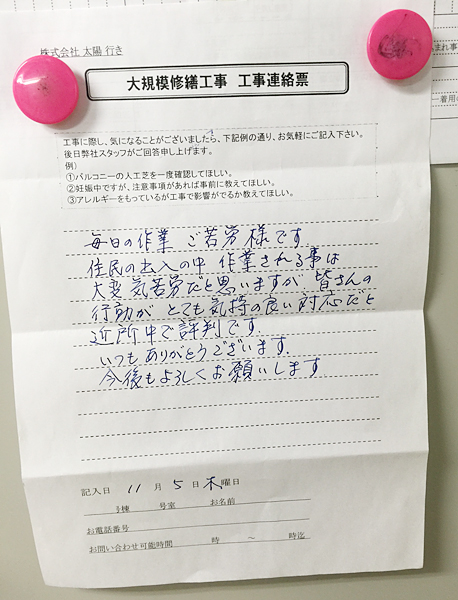 株式会社 太陽 行き
大規模修繕工事 工事連絡票
工事に際し、気になることがございましたら、下記例の通り、お気軽にご記入下さい。
後日弊社スタッフがご回答申し上げます。
例）
①バルコニーの人工芝を一度確認してほしい。
②妊娠中ですが、注意事項があれば事前に教えてほしい。
③アレルギーをもっているが工事で影響がでるか教えてほしい。
毎日の作業 ご苦労様です。
住民の出入の中 作業される事は
大変 気苦労だと思いますが、皆さんの
行動が とても気持の良い対応だと
近所中で評判です。
いつもありがとうございます。
今後もよろしくお願いします
記入日 11 月 5 日 木 曜日
号棟 号室 お名前
お電話番号
お問い合わせ可能時間 時 ～ 時迄